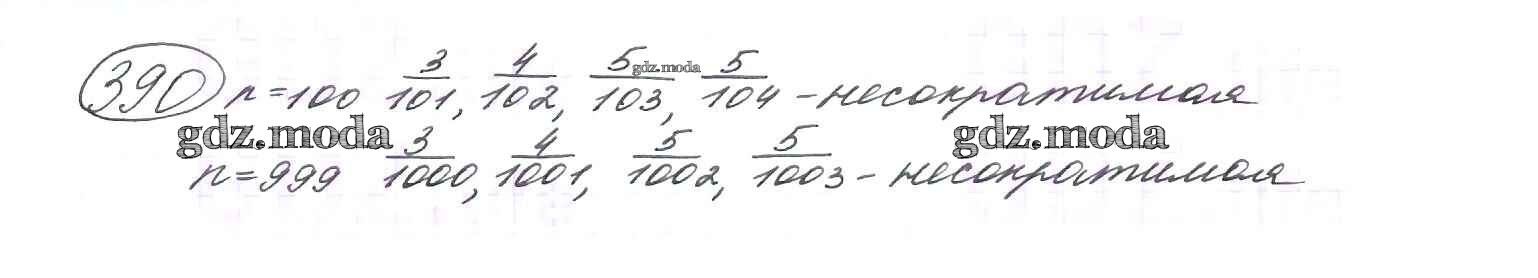 390 n=100 3/101, 4/102, 5/103, 5/104 - несократимая
gdz.moda
gdz.moda gdz.moda
n=999 3/1000, 4/1001, 5/1002, 5/1003 - несократимая